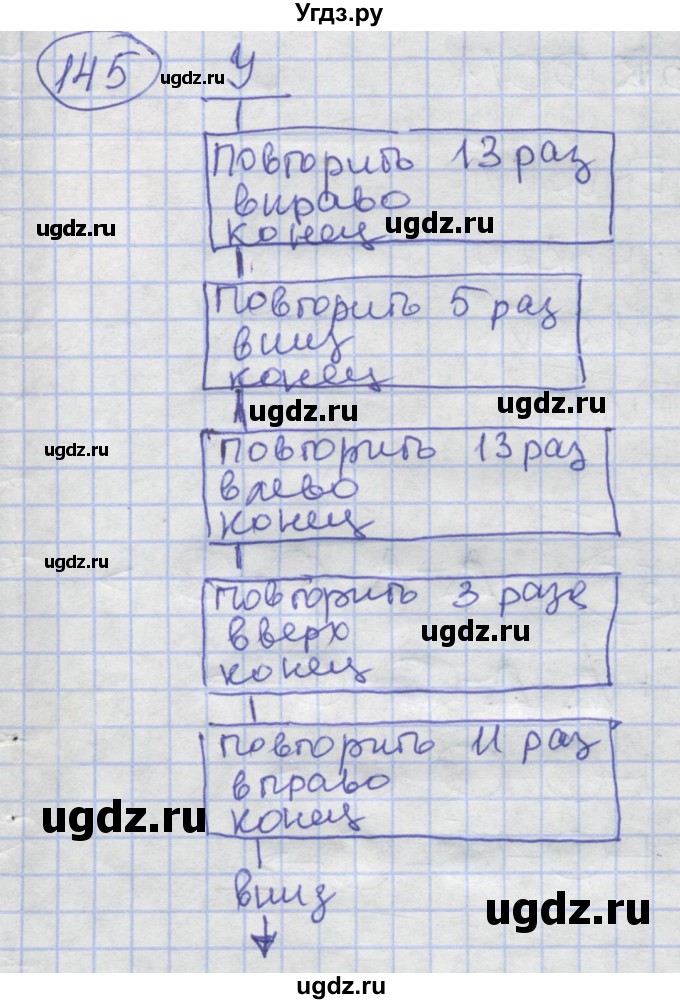 Угдз.ру
145
ugdz.ru
У
Повторить 13 раз
вправо
ugdz.ru
ugdz.ru
конец
Повторить 5 раз
вниз
конец
ugdz.ru
ugdz.ru
ugdz.ru
Повторить 13 раз
влево
конец
ugdz.ru
повторить 3 раза
вверх
ugdz.ru
конец
повторить 11 раз
вправо
ugdz.ru
конец
вниз
ugdz.ru
ugdz.ru